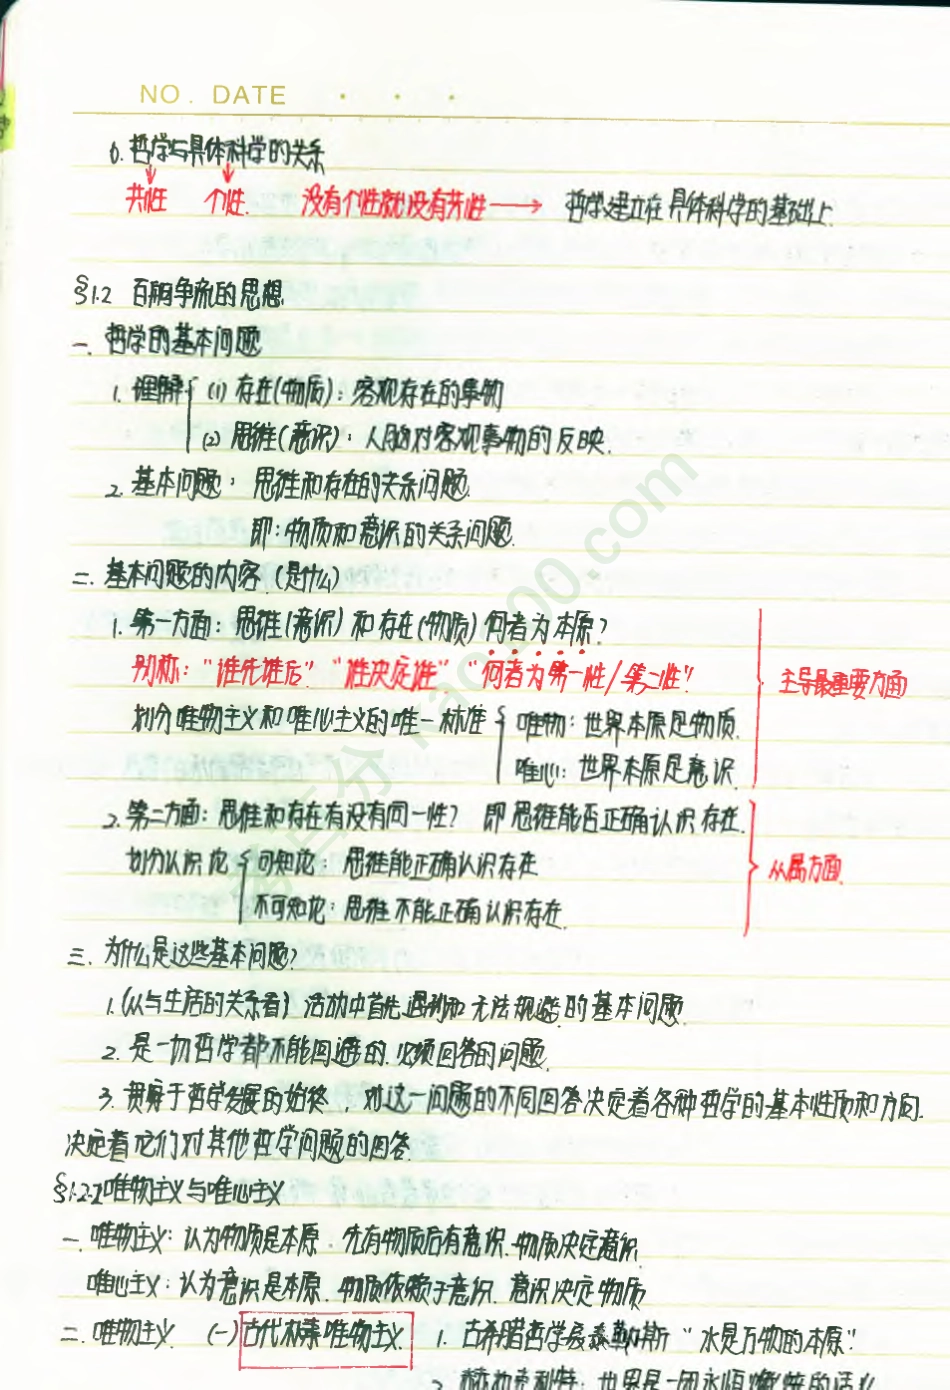 NO. DATE
6. 哲学与具体科学的关系
共性 个性. 没有个性就没有共性 → 哲学建立在具体科学的基础上.
§1.2 百舸争流的思想.
一. 哲学的基本问题
1. 理解 (1) 存在(物质): 客观存在的事物
(2) 思维(意识): 人脑对客观事物的反映.
2. 基本问题: 思维和存在的关系问题.
即: 物质和意识的关系问题.
二. 基本问题的内容. (是什么)
1. 第一方面: 思维(意识) 和存在(物质) 何者为本原?
别称: "谁先谁后" "谁决定谁" "何者为第一性/第二性"
主导最重要方面
划分唯物主义和唯心主义的唯一标准 唯物: 世界本原是物质.
唯心: 世界本原是意识.
2. 第二方面: 思维和存在有没有同一性? 即思维能否正确认识存在.
划分认识论 可知论: 思维能正确认识存在
从属方面.
不可知论: 思维不能正确认识存在.
三. 为什么是这些基本问题?
1. (从与生活的关系看) 活动中首先遇到和无法规避的基本问题.
2. 是一切哲学都不能回避的.必须回答的问题.
3. 贯穿于哲学发展的始终, 对这一问题的不同回答决定着各种哲学的基本性质和方向.
决定着它们对其他哲学问题的回答.
§1.2.2唯物主义与唯心主义
一. 唯物主义: 认为物质是本原. 先有物质后有意识. 物质决定意识.
唯心主义: 认为意识是本原. 物质依赖于意识. 意识决定物质
二. 唯物主义. (一) 古代朴素唯物主义. 1. 古希腊哲学家泰勒斯 "水是万物的本原"
2. 赫拉克利特: 世界是一团永恒燃烧的活火
考百分 kao100.com